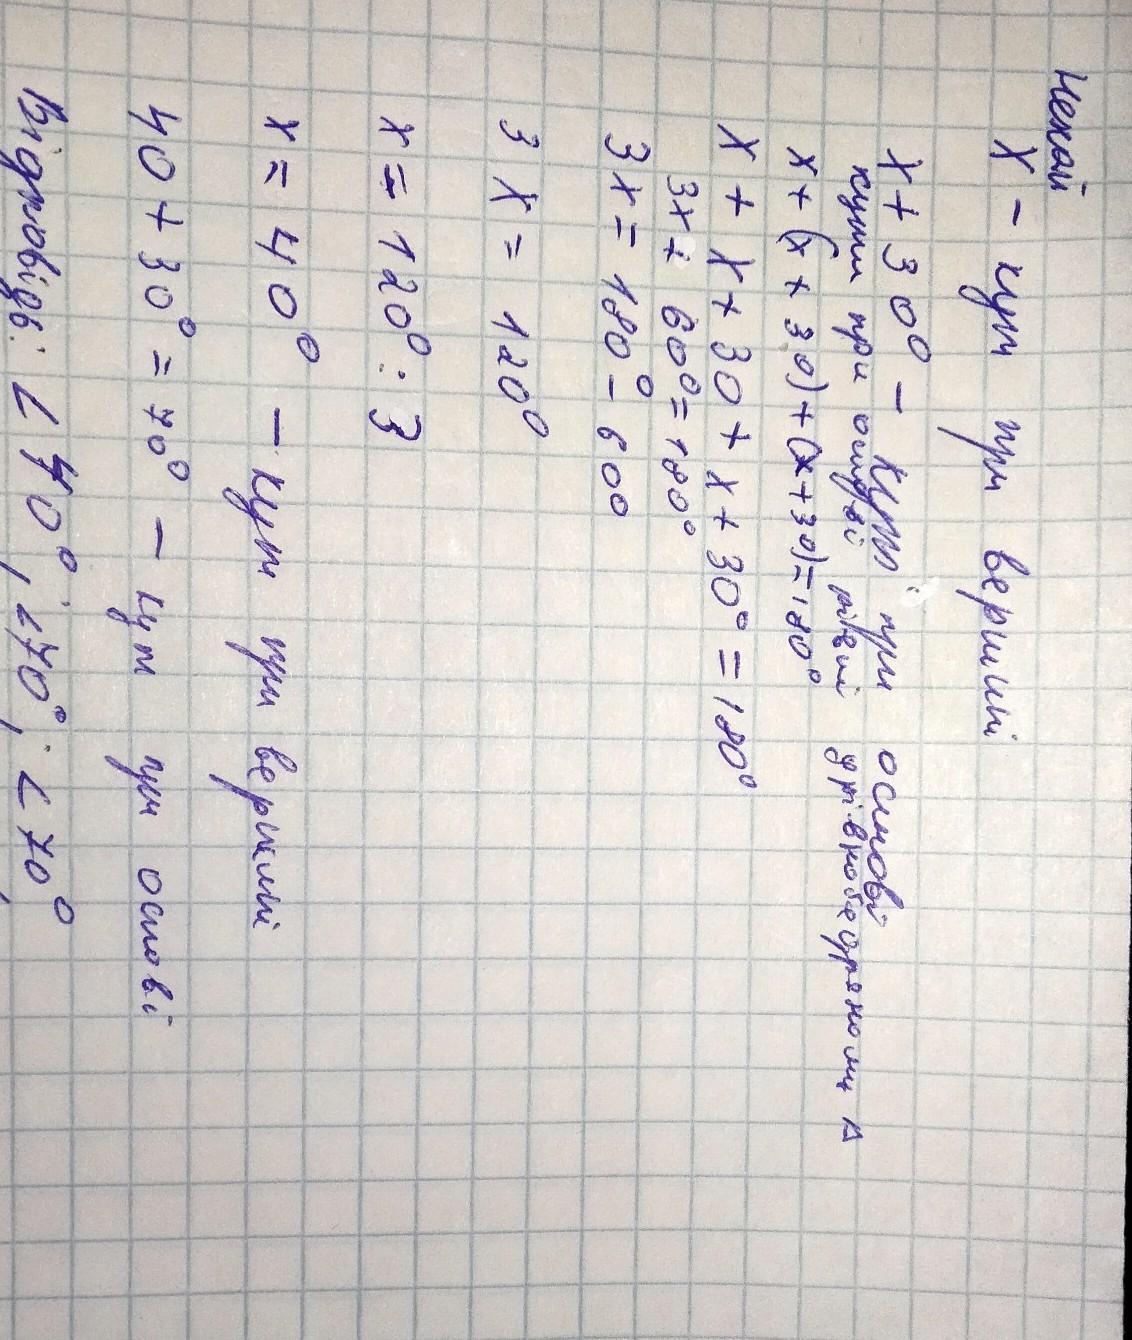 Нехай
x - кут при вершині
x + 30° - кут при основі
кути при основі рівні у рівнобедреному Δ
x + (x + 30) + (x + 30) = 180°
x + x + 30 + x + 30° = 180°
3x + 60° = 180°
3x = 180° - 60°
3x = 120°
x = 120° : 3
x = 40° - кут при вершині
40 + 30° = 70° - кут при основі
Відповідь: ∠40°, ∠70°, ∠70°